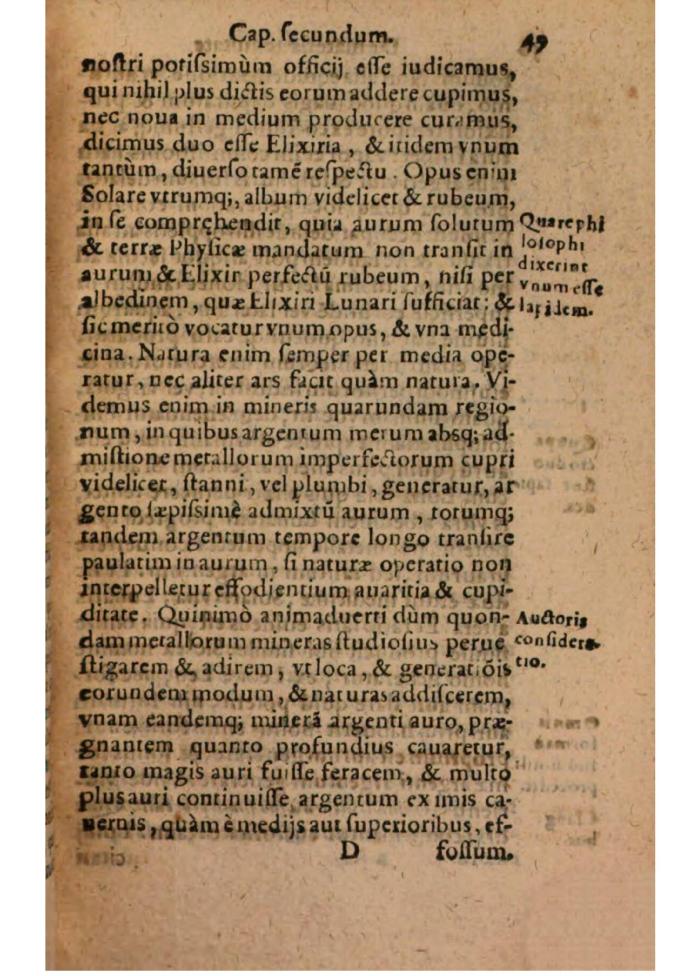 Cap. ſecundum. 49
noſtri potiſsimùm officij eſſe iudicamus,
qui nihil plus dictis eorum addere cupimus,
nec noua in medium producere curamus,
dicimus duo eſſe Elixiria, & itidem vnum
tantùm, diuerſo tamē reſpectu. Opus enim
Solare vtrumq;, album videlicet & rubeum,
in ſe comprehendit, quia aurum ſolutum
& terræ Phyſicæ mandatum non tranſit in
aurum & Elixir perfectū rubeum, niſi per
albedinem, quæ Elixiri Lunari ſufficiat: &
ſic meritò vocatur vnum opus, & vna medi-
cina. Natura enim ſemper per media ope-
ratur, nec aliter ars facit quàm natura. Vi-
demus enim in mineris quarundam regio-
num, in quibus argentum merum absq; ad-
miſtione metallorum imperfectorum cupri
videlicet, ſtanni, vel plumbi, generatur, ar
gento ſæpiſsimè admixtū aurum, totumq;
tandem argentum tempore longo tranſire
paulatim in aurum, ſi naturæ operatio non
interpelletur effodientium auaritia & cupi-
ditate. Quinimò animaduerti dùm quon-
dam metallorum mineras ſtudioſius perue
ſtigarem & adirem, vt loca, & generatiōis
eorundem modum, & naturas addiſcerem,
vnam eandemq; minerā argenti auro, præ-
gnantem quanto profundius cauaretur,
tanto magis auri fuiſſe feracem, & multò
plus auri continuiſſe argentum ex imis ca-
uernis, quàm è medijs aut ſuperioribus, ef-
D foſſum.
Quare phi
loſophi
dixerint
vnum eſſe
lapidem.
Auctoris
conſidera-
tio.